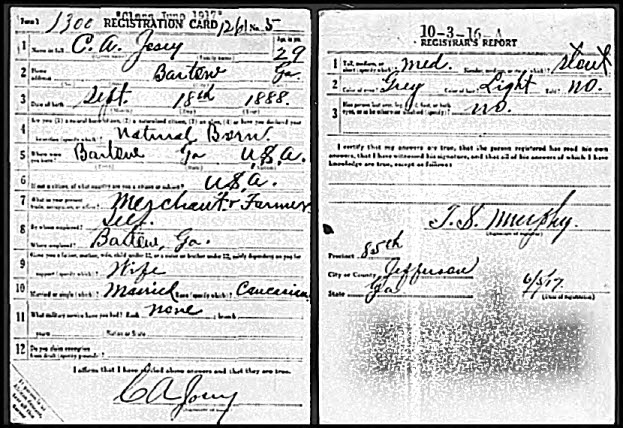 Form 1 1300 "Class June 1917" REGISTRATION CARD 1261 No. 5
1 Name in full C. A. Josey Age, in yrs. 29
(Family name)
2 Home address Bartow Ga.
3 Date of birth Sept. 18th 1888.
4 Are you (1) a natural-born citizen, (2) a naturalized citizen, (3) an alien, (4) or have you declared your intention (specify which)? Natural Born
5 Where were you born? Bartow Ga U.S.A.
6 If not a citizen, of what country are you a citizen or subject? U.S.A.
7 What is your present trade, occupation, or office? Merchant & Farmer
8 By whom employed? Self.
Where employed? Bartow, Ga.
9 Have you a father, mother, wife, child under 12, or a sister or brother under 12, solely dependent on you for
support (specify which)? Wife
10 Married or single (which)? Married Race (specify which)? Caucasian
11 What military service have you had? Rank none branch
years Nation or State
12 Do you claim exemption from draft (specify grounds)?
I affirm that I have verified above answers and that they are true.
C A Josey
10-3-16 A
REGISTRAR'S REPORT
1 Tall, medium, or short (specify which)? Med. Slender, medium, or stout (which)? stout
2 Color of eyes? Grey Color of hair? Light Bald? no.
3 Has person lost arm, leg, hand, foot, or both eyes, or is he otherwise disabled (specify)? no.
I certify that my answers are true, that the person registered has read his own
answers, that I have witnessed his signature, and that all of his answers of which I have
knowledge are true, except as follows:
T. S. Murphy.
(Signature of registrar)
Precinct 85th
City or County Jefferson
State Ga 6/5/17.
(Date of registration)